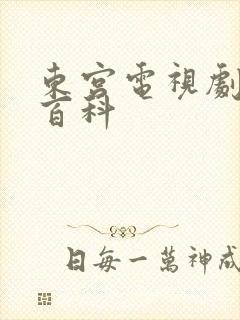 東宮電視劇
百科
日每一萬神成